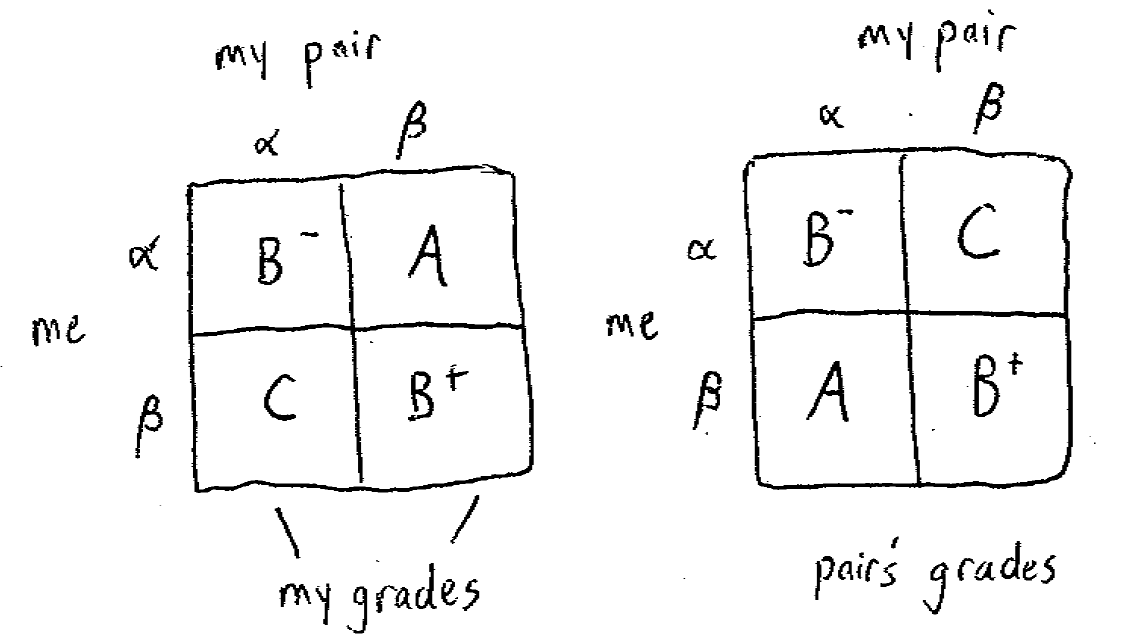 my pair
α β
α B- A
me
β C B+
my grades
my pair
α β
α B- C
me
β A B+
pair's grades